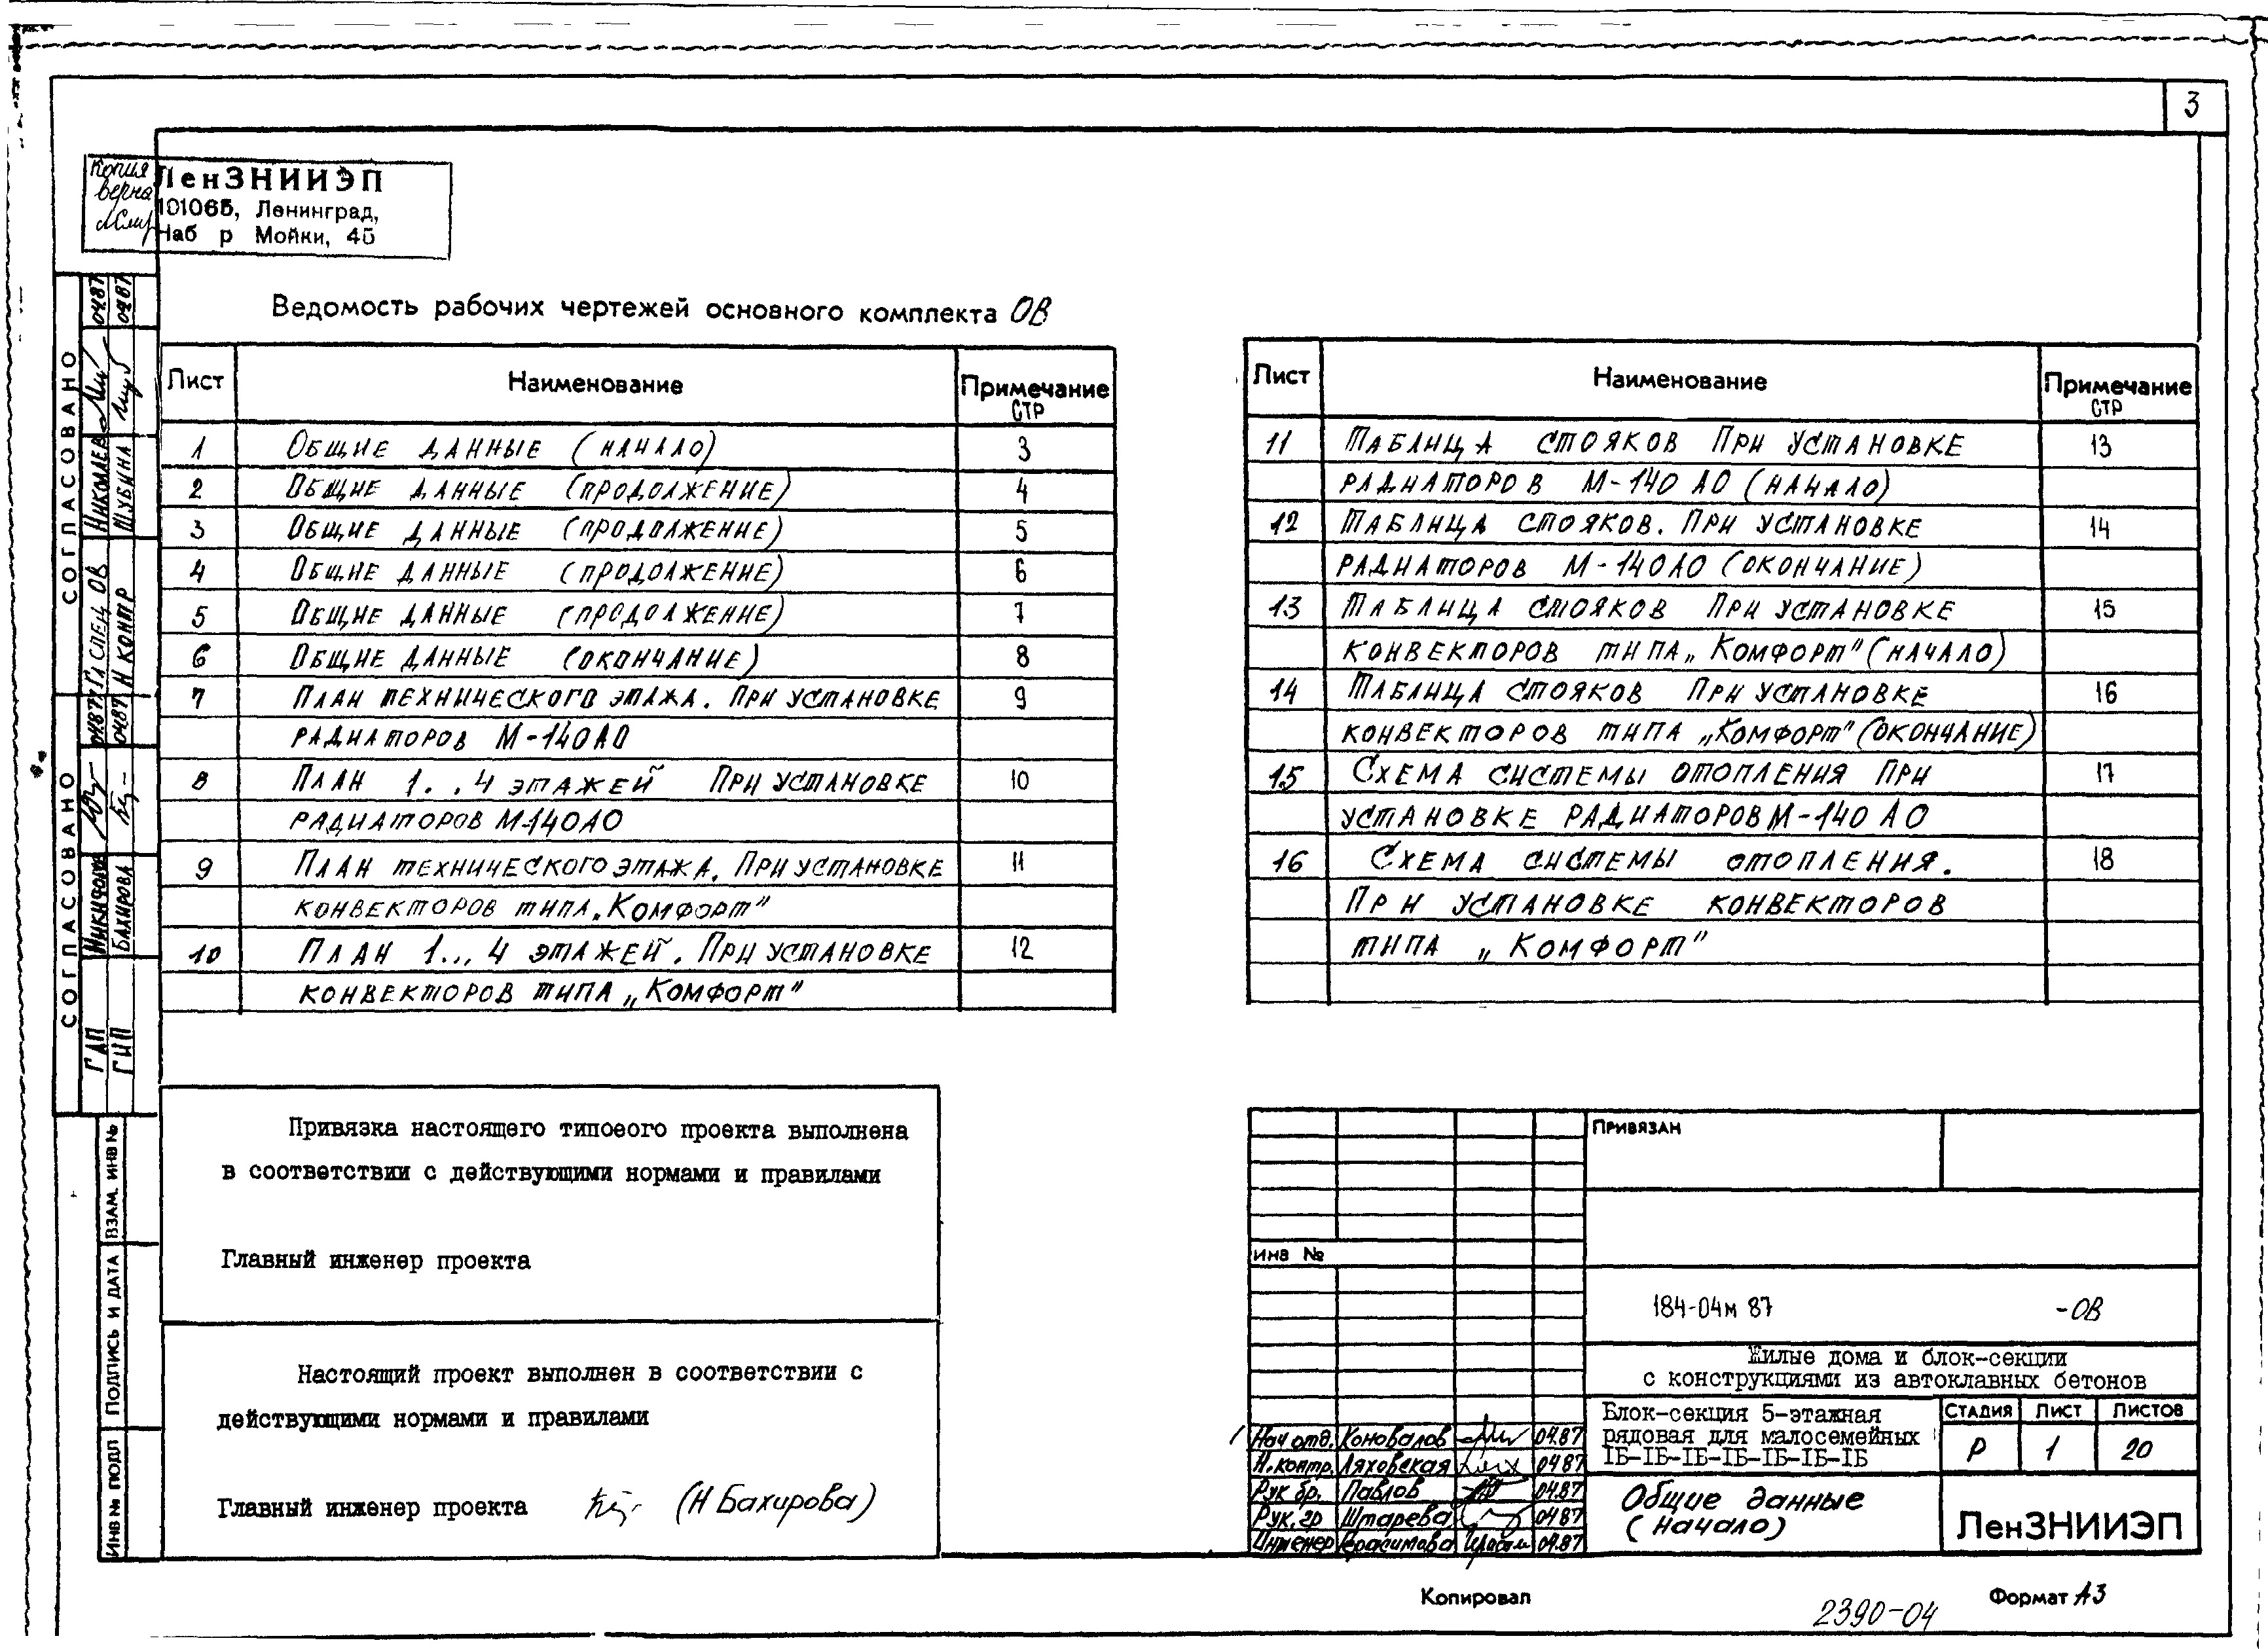 3
Копия
верна
ЛенЗНИИЭП
101065, Ленинград,
Наб р Мойки, 45
Ведомость рабочих чертежей основного комплекта ОВ
Лист Наименование Примечание
СТР
1 Общие данные (начало) 3
2 Общие данные (продолжение) 4
3 Общие данные (продолжение) 5
4 Общие данные (продолжение) 6
5 Общие данные (продолжение) 7
6 Общие данные (окончание) 8
7 План технического этажа. При установке 9
радиаторов М-140АО
8 План 1..4 этажей При установке 10
радиаторов М-140АО
9 План технического этажа. При установке 11
конвекторов типа „Комфорт"
10 План 1...4 этажей. При установке 12
конвекторов типа „Комфорт"
Лист Наименование Примечание
СТР
11 Таблица стояков При установке 13
радиаторов М-140 АО (начало)
12 Таблица стояков. При установке 14
радиаторов М-140АО (окончание)
13 Таблица стояков При установке 15
конвекторов типа „Комфорт" (начало)
14 Таблица стояков При установке 16
конвекторов типа „Комфорт" (окончание)
15 Схема системы отопления При 17
установке радиаторов М-140 АО
16 Схема системы отопления. 18
При установке конвекторов
типа „Комфорт"
СОГЛАСОВАНО
Гл спец ОВ Николаев 0487
Н контр Шубина 0487
СОГЛАСОВАНО
ГАП 0487
ГИП Бахирова 0487
Инв № подл Подпись и дата Взам. инв №
Привязка настоящего типового проекта выполнена
в соответствии с действующими нормами и правилами
Главный инженер проекта
Настоящий проект выполнен в соответствии с
действующими нормами и правилами
Главный инженер проекта (Н Бахирова)
Привязан
инв №
184-04м 87 -ОВ
Жилые дома и блок-секции
с конструкциями из автоклавных бетонов
Блок-секция 5-этажная
рядовая для малосемейных
1Б-1Б-1Б-1Б-1Б-1Б-1Б
Стадия Лист Листов
Р 1 20
Нач отд. Коновалов 04.87
Н.контр. Ляховская 0487
Рук бр. Павлов 04.87
Рук. гр Штарева 0487
Инженер Герасимова 04.87
Общие данные
(начало)
ЛенЗНИИЭП
Копировал
Формат А3
2390-04